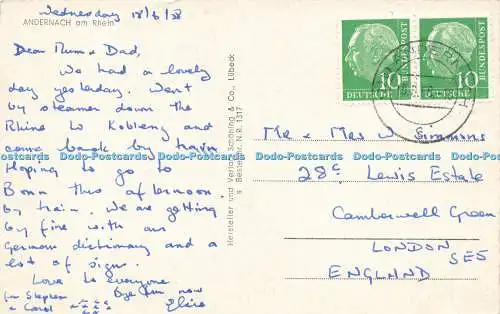 Wednesday 18/6/58
ANDERNACH am Rhein
Dear Mum & Dad,
We had a lovely
day yesterday. Went
by steamer down the
Rhine to Koblenz and
come back by train
Hoping to go to
Bonn this afternoon
by train. We are getting
by fine with our
German dictionary and a
lot of signs.
Love to everyone
Bye for now
for Stephen
& Carol
Elsie
Hersteller und Verlag Schöning & Co., Lübeck
Bestell-Nr. N.R. 1317
10
DEUTSCHE BUNDESPOST
10
DEUTSCHE BUNDESPOST
Mr & Mrs W Simmons
28c Lewis Estate
Camberwell Green
LONDON
SE5
ENGLAND
Do-Postcards Do-Postcards Do-Postcards Do-Postcards Do-Postcards